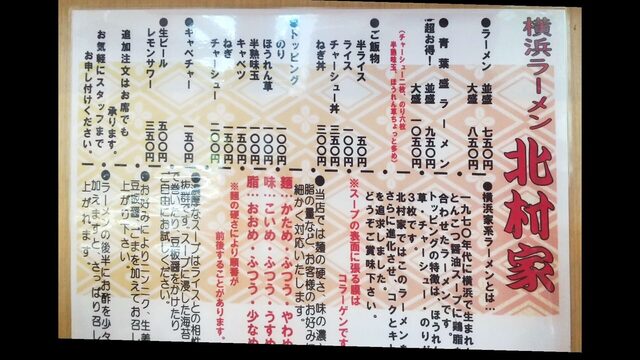 横浜ラーメン 北村家
●ラーメン 並盛 七五〇円
大盛 八五〇円
青葉盛ラーメン
超お得！ 並盛 九五〇円
大盛 一〇五〇円
(チャーシュー二枚、のり六枚
半熟味玉、ほうれん草ちょっと多め)
●ご飯物
半ライス 五〇円
ライス 一〇〇円
チャーシュー丼 三五〇円
ねぎ丼 三〇〇円
●トッピング
のり 一〇〇円
ほうれん草 一〇〇円
半熟味玉 一〇〇円
キャベツ 一〇〇円
ねぎ 一〇〇円
チャーシュー 二〇〇円
●キャベチャー 一五〇円
●生ビール 五〇〇円
レモンサワー 三五〇円
追加注文はお席でも
承ります。
お気軽にスタッフまで
お申し付けください。
●横浜家系ラーメンとは…
一九七〇年代に横浜で生まれ
とんこつ醤油スープに鶏脂
合わせたラーメンです。
トッピングの特徴は、ほうれん
草・チャーシュー・のり
3枚です。
北村家ではこのラーメン
さらに進化させ、コクとキ
を追求しました。
どうぞご賞味下さい。
※スープの表面に張る膜は
コラーゲンです
●当店では麺の硬さ、味の濃
脂の量など、お客様のお好み
細かく対応いたします。
麺…かため・ふつう・やわめ
味…こいめ・ふつう・うすめ
脂…おおめ・ふつう・少なめ
※麺の硬さにより順番が
前後することがあります。
濃厚なスープはライスとの相性
抜群です。スープに浸した海苔
で巻いたり、豆板醤をかけたり
ご自由にお試しください。
●お好みによりニンニク、生姜
豆板醤、ごまを加えてお召し
上がり下さい。
●ラーメンの後半にお酢を少々
加えますと、さっぱり召し
上がれます。